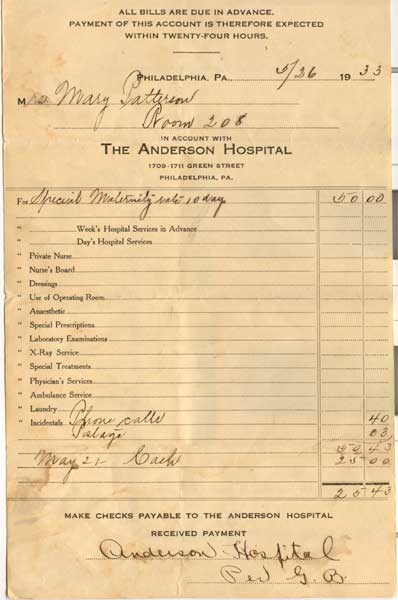 ALL BILLS ARE DUE IN ADVANCE.
PAYMENT OF THIS ACCOUNT IS THEREFORE EXPECTED
WITHIN TWENTY-FOUR HOURS.
PHILADELPHIA, PA., 5/26 1933
Mrs Mary Patterson
Room 208
IN ACCOUNT WITH
THE ANDERSON HOSPITAL
1709-1711 GREEN STREET
PHILADELPHIA, PA.
For Special Maternity rate 10 day 50 00
" Week's Hospital Services in Advance
" Day's Hospital Services
" Private Nurse
" Nurse's Board
" Dressings
" Use of Operating Room
" Anaesthetic
" Special Prescriptions
" Laboratory Examinations
" X-Ray Service
" Special Treatments
" Physician's Services
" Ambulance Service
" Laundry
" Incidentals Phone calls 40
Postage 03
50 43
May 21- Cash 25 00
25 43
MAKE CHECKS PAYABLE TO THE ANDERSON HOSPITAL
RECEIVED PAYMENT
Anderson Hospital
Per G. B.